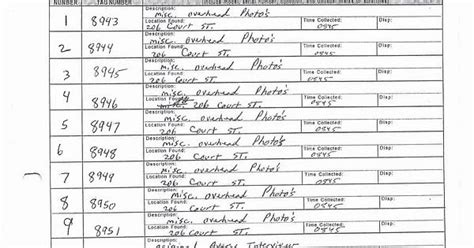 NUMBER TAG NUMBER (INCLUDE MODEL, SERIAL NUMBER,
1 8943 Description: misc. overhead Photo's
Location Found: 206 Court ST. Time Collected: 0845
2 8944 Description: misc. overhead Photo's
Location Found: 206 Court ST. Time Collected: 0845
3 8945 Description: misc. overhead Photo's
Location Found: 206 Court ST. Time Collected: 0845
4 8946 Description: misc. overhead Photo's
Location Found: 206 Court ST. Time Collected: 0845
5 8947 Description: misc. overhead Photo's
Location Found: 206 Court ST. Time Collected: 0845
6 8948 Description: misc. overhead Photo's
Location Found: 206 Court ST. Time Collected: 0845
7 8949 Description: misc. overhead Photo's
Location Found: 206 Court ST. Time Collected: 0845
8 8950 Description: misc. overhead Photo's
Location Found: 206 Court ST. Time Collected: 0845
9 8951 Description: misc. overhead Photo's
Location Found: 206 Court ST. Time Collected: 0845
Description: original Avery Interview